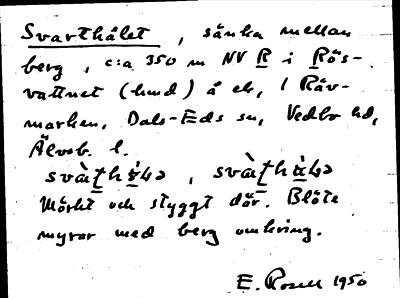 Svarthålet, sänka mellan
berg, c:a 350 m NV R i Rös-
vattnet (hmd) å ek, 1 Räv-
marken, Dals-Eds sn, Vedbo hd,
Älvsb. l.
Mörkt och styggt där. Blöta
myrar med berg omkring.
E. Rosell 1950